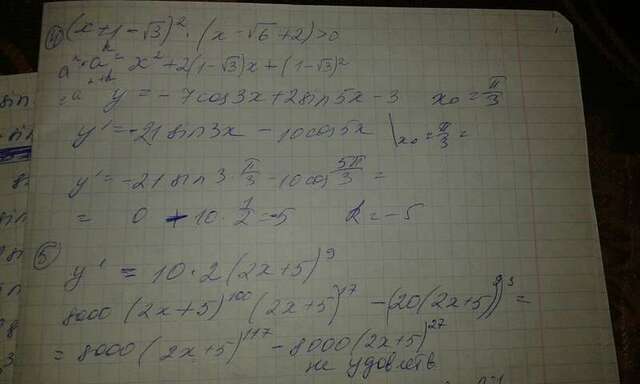 ④ (x+1-√3)² · (x-√6+2)>0
aⁿ·aᵏ= x²+2(1-√3)x+(1-√3)²
=aⁿ⁺ᵏ y = -7cos3x+2sin5x-3 x₀=π/3
y'=-21sin3x - 10cos5x |x₀=π/3=
y'=-21sin3·π/3-10cos 5π/3 =
= 0 + 10·1/2=-5 k=-5
⑤ y' = 10·2(2x+5)⁹
8000(2x+5)¹⁰⁰(2x+5)¹⁷-(20(2x+5)⁹)³=
=8000(2x+5)¹¹⁷-8000(2x+5)²⁷
не удовлетв